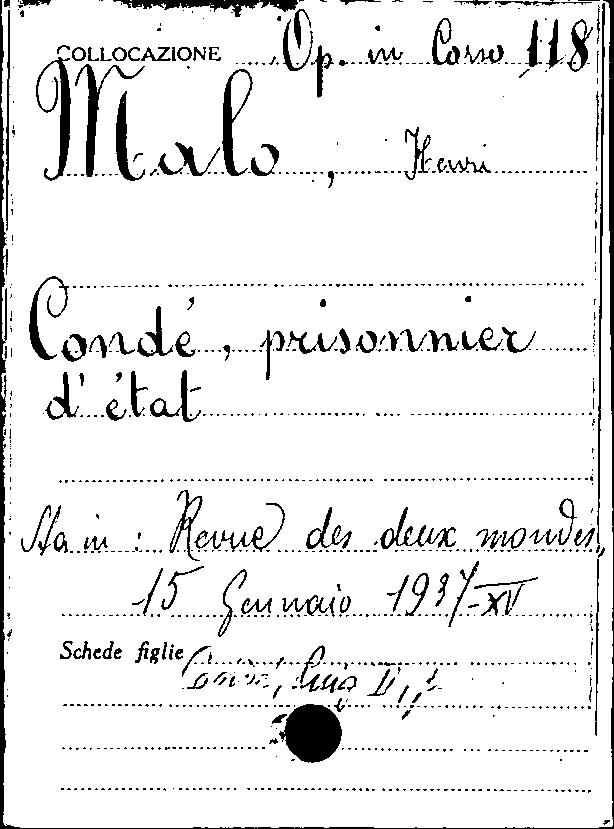 COLLOCAZIONE Op. in Corso 118
Malo, Henri
Condé, prisonnier
d'état
Sta in: Revue des deux mondes,
15 Gennaio 1937-XV
Schede figlie